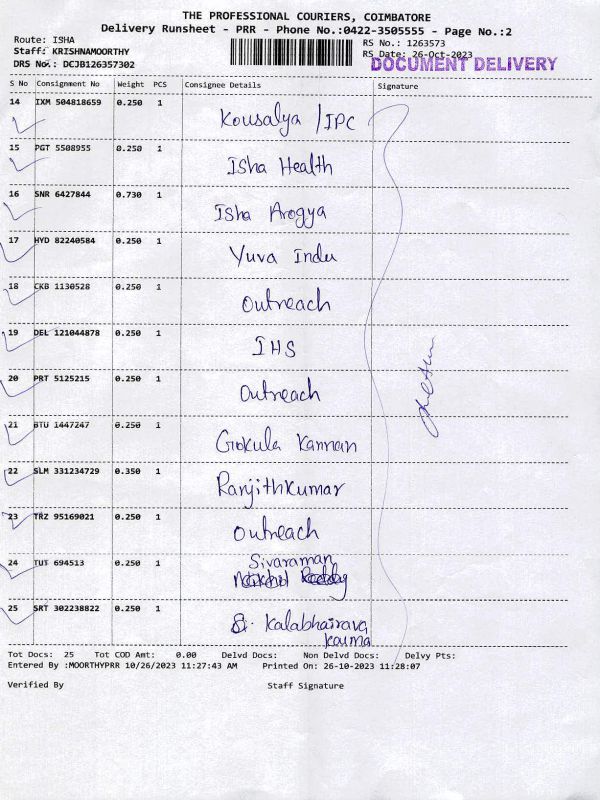 THE PROFESSIONAL COURIERS, COIMBATORE
Delivery Runsheet - PRR - Phone No.:0422-3505555 - Page No.:2
Route: ISHA
RS No.: 1263573
Staff: KRISHNAMOORTHY
RS Date: 26-Oct-2023
DRS No.: DCJB126357302
DOCUMENT DELIVERY
S No Consignment No Weight PCS Consignee Details Signature
14 IXM 504818659 0.250 1 Kousalya / IPC
15 PGT 5508955 0.250 1 Isha Health
16 SNR 6427844 0.730 1 Isha Arogya
17 HYD 82240584 0.250 1 Yuva Indu
18 CKB 1130528 0.250 1 Outreach
19 DEL 121044878 0.250 1 IHS
20 PRT 5125215 0.250 1 Outreach
21 BTU 1447247 0.250 1 Gokula Kannan
22 SLM 331234729 0.350 1 Ranjithkumar
23 TRZ 95169021 0.250 1 Outreach
24 TUT 694513 0.250 1 Sivaraman
25 SRT 302238822 0.250 1 Kalabhairava
Karma
Tot Docs: 25 Tot COD Amt: 0.00 Delvd Docs: Non Delvd Docs: Delvy Pts:
Entered By :MOORTHYPRR 10/26/2023 11:27:43 AM Printed On: 26-10-2023 11:28:07
Verified By Staff Signature